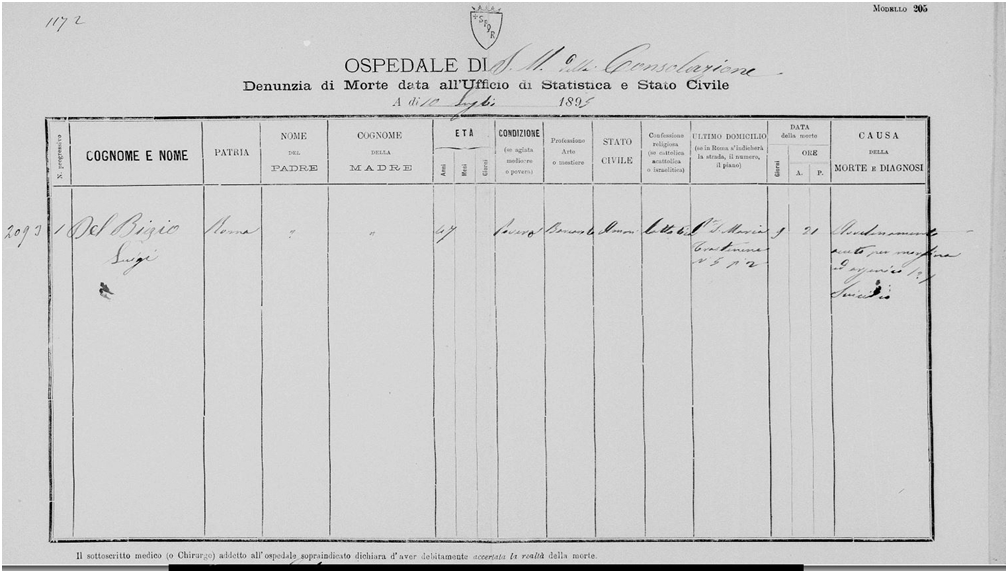 1172
SPQR
MODELLO 205
OSPEDALE DI S. M. della Consolazione
Denunzia di Morte data all'Ufficio di Statistica e Stato Civile
A dì 10 Luglio 1895
N. progressivo
COGNOME E NOME
PATRIA
NOME
DEL
PADRE
COGNOME
DELLA
MADRE
ETÀ
Anni
Mesi
Giorni
CONDIZIONE
(se agiata
mediocre
o povera)
Professione
Arte
o mestiere
STATO
CIVILE
Confessione
religiosa
(se cattolica
acattolica
o israelitica)
ULTIMO DOMICILIO
(se in Roma s'indicherà
la strada, il numero,
il piano)
DATA
della morte
Giorni
ORE
A.
P.
CAUSA
DELLA
MORTE E DIAGNOSI
2093 1 Del Bigio Roma " " 47 Povero 9 21 Avvelenamento
Luigi
S. Maria
Trastevere
N 5 p 2
acuto per morfina
ed arsenico
Suicidio
Il sottoscritto medico (o Chirurgo) addetto all'ospedale sopraindicato dichiara d'aver debitamente accertata la realtà della morte.